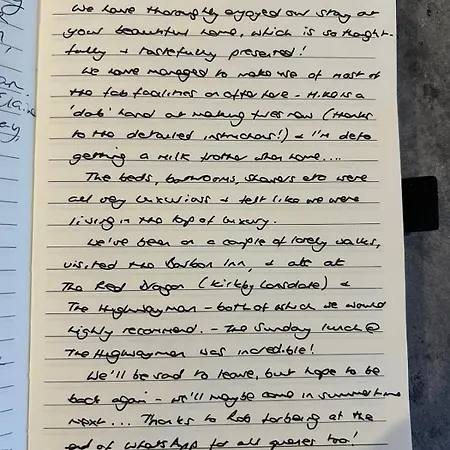 We have thoroughly enjoyed our stay at
your beautiful home, which is so thought-
fully & tastefully presented!
We have managed to make use of most of
the fab facilities on offer here - Mike is a
'dab' hand at making fires now (thanks
to the detailed instructions!) & I'm def
getting a milk frother when home....
The beds, bathrooms, showers etc were
all very luxurious & felt like we were
living in the lap of luxury.
We've been on a couple of lovely walks,
visited the Barbon Inn, & ate at
The Red Dragon (Kirkby Lonsdale) &
The Highwayman - both of which we would
highly recommend. - The Sunday lunch @
The Highwayman was incredible!
We'll be sad to leave, but hope to be
back again - we'll maybe come in summertime
next... Thanks to Rob for being at the
end of WhatsApp for all queries too!